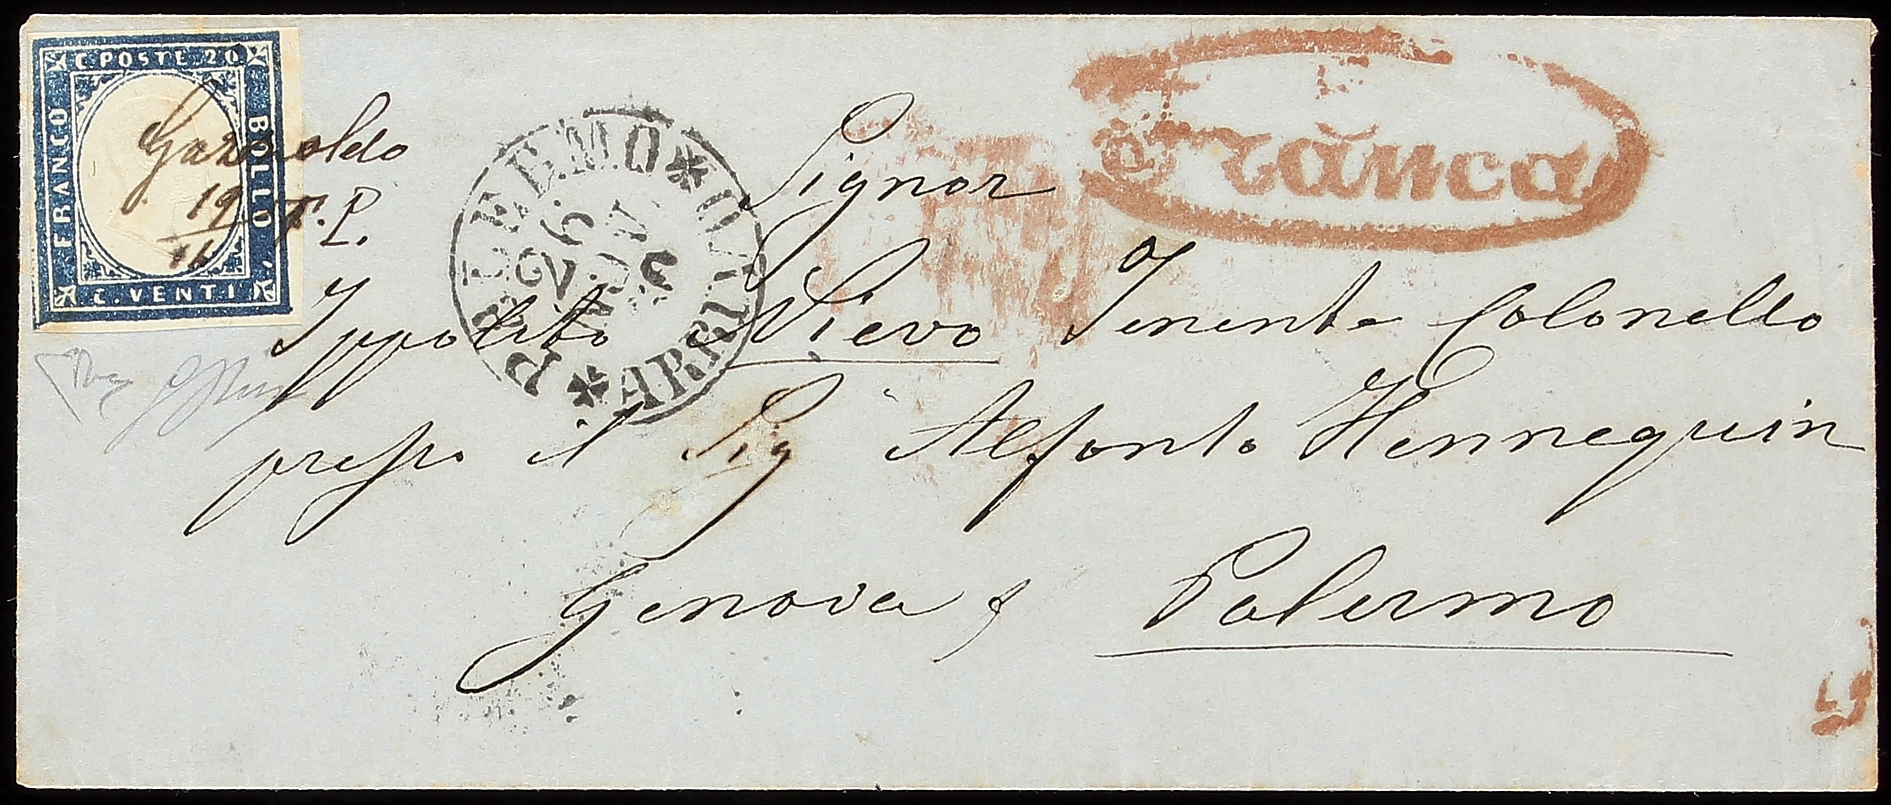 C. POSTE 20
FRANCO
BOLLO
C. VENTI
Garzoldo
19
T.P.
PALERMO
ARRIVO
26
NOV
Franca
Signor
Ippolito Nievo Tenente Colonello
presso il Sig Alfonso Hennequin
Genova p Palermo